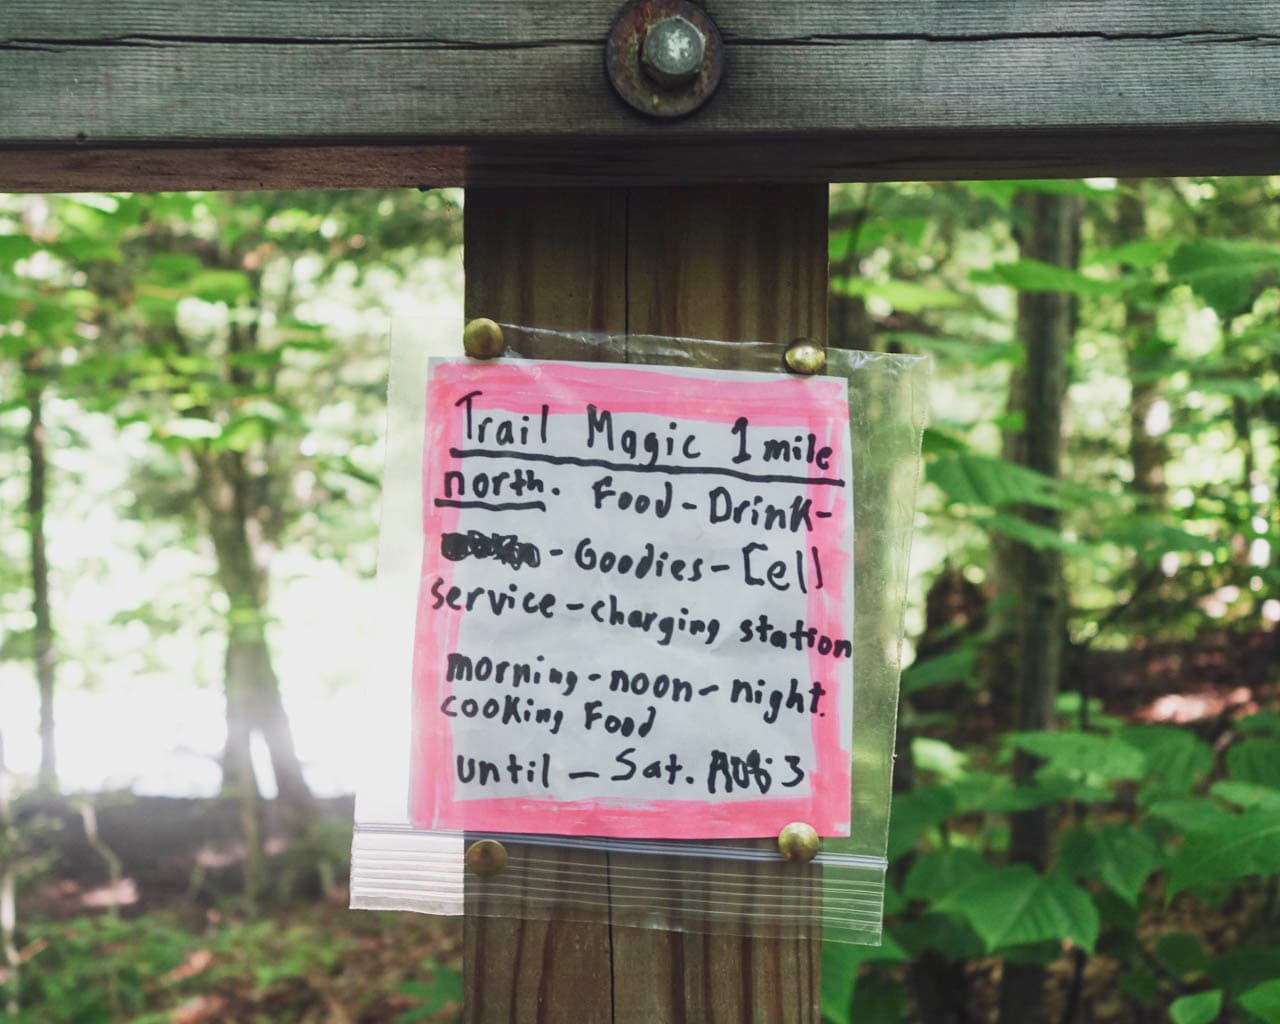 Trail Magic 1 mile
north. Food - Drink -
- Goodies - Cell
service - charging station
morning - noon - night.
cooking Food
until - Sat. AUG 3